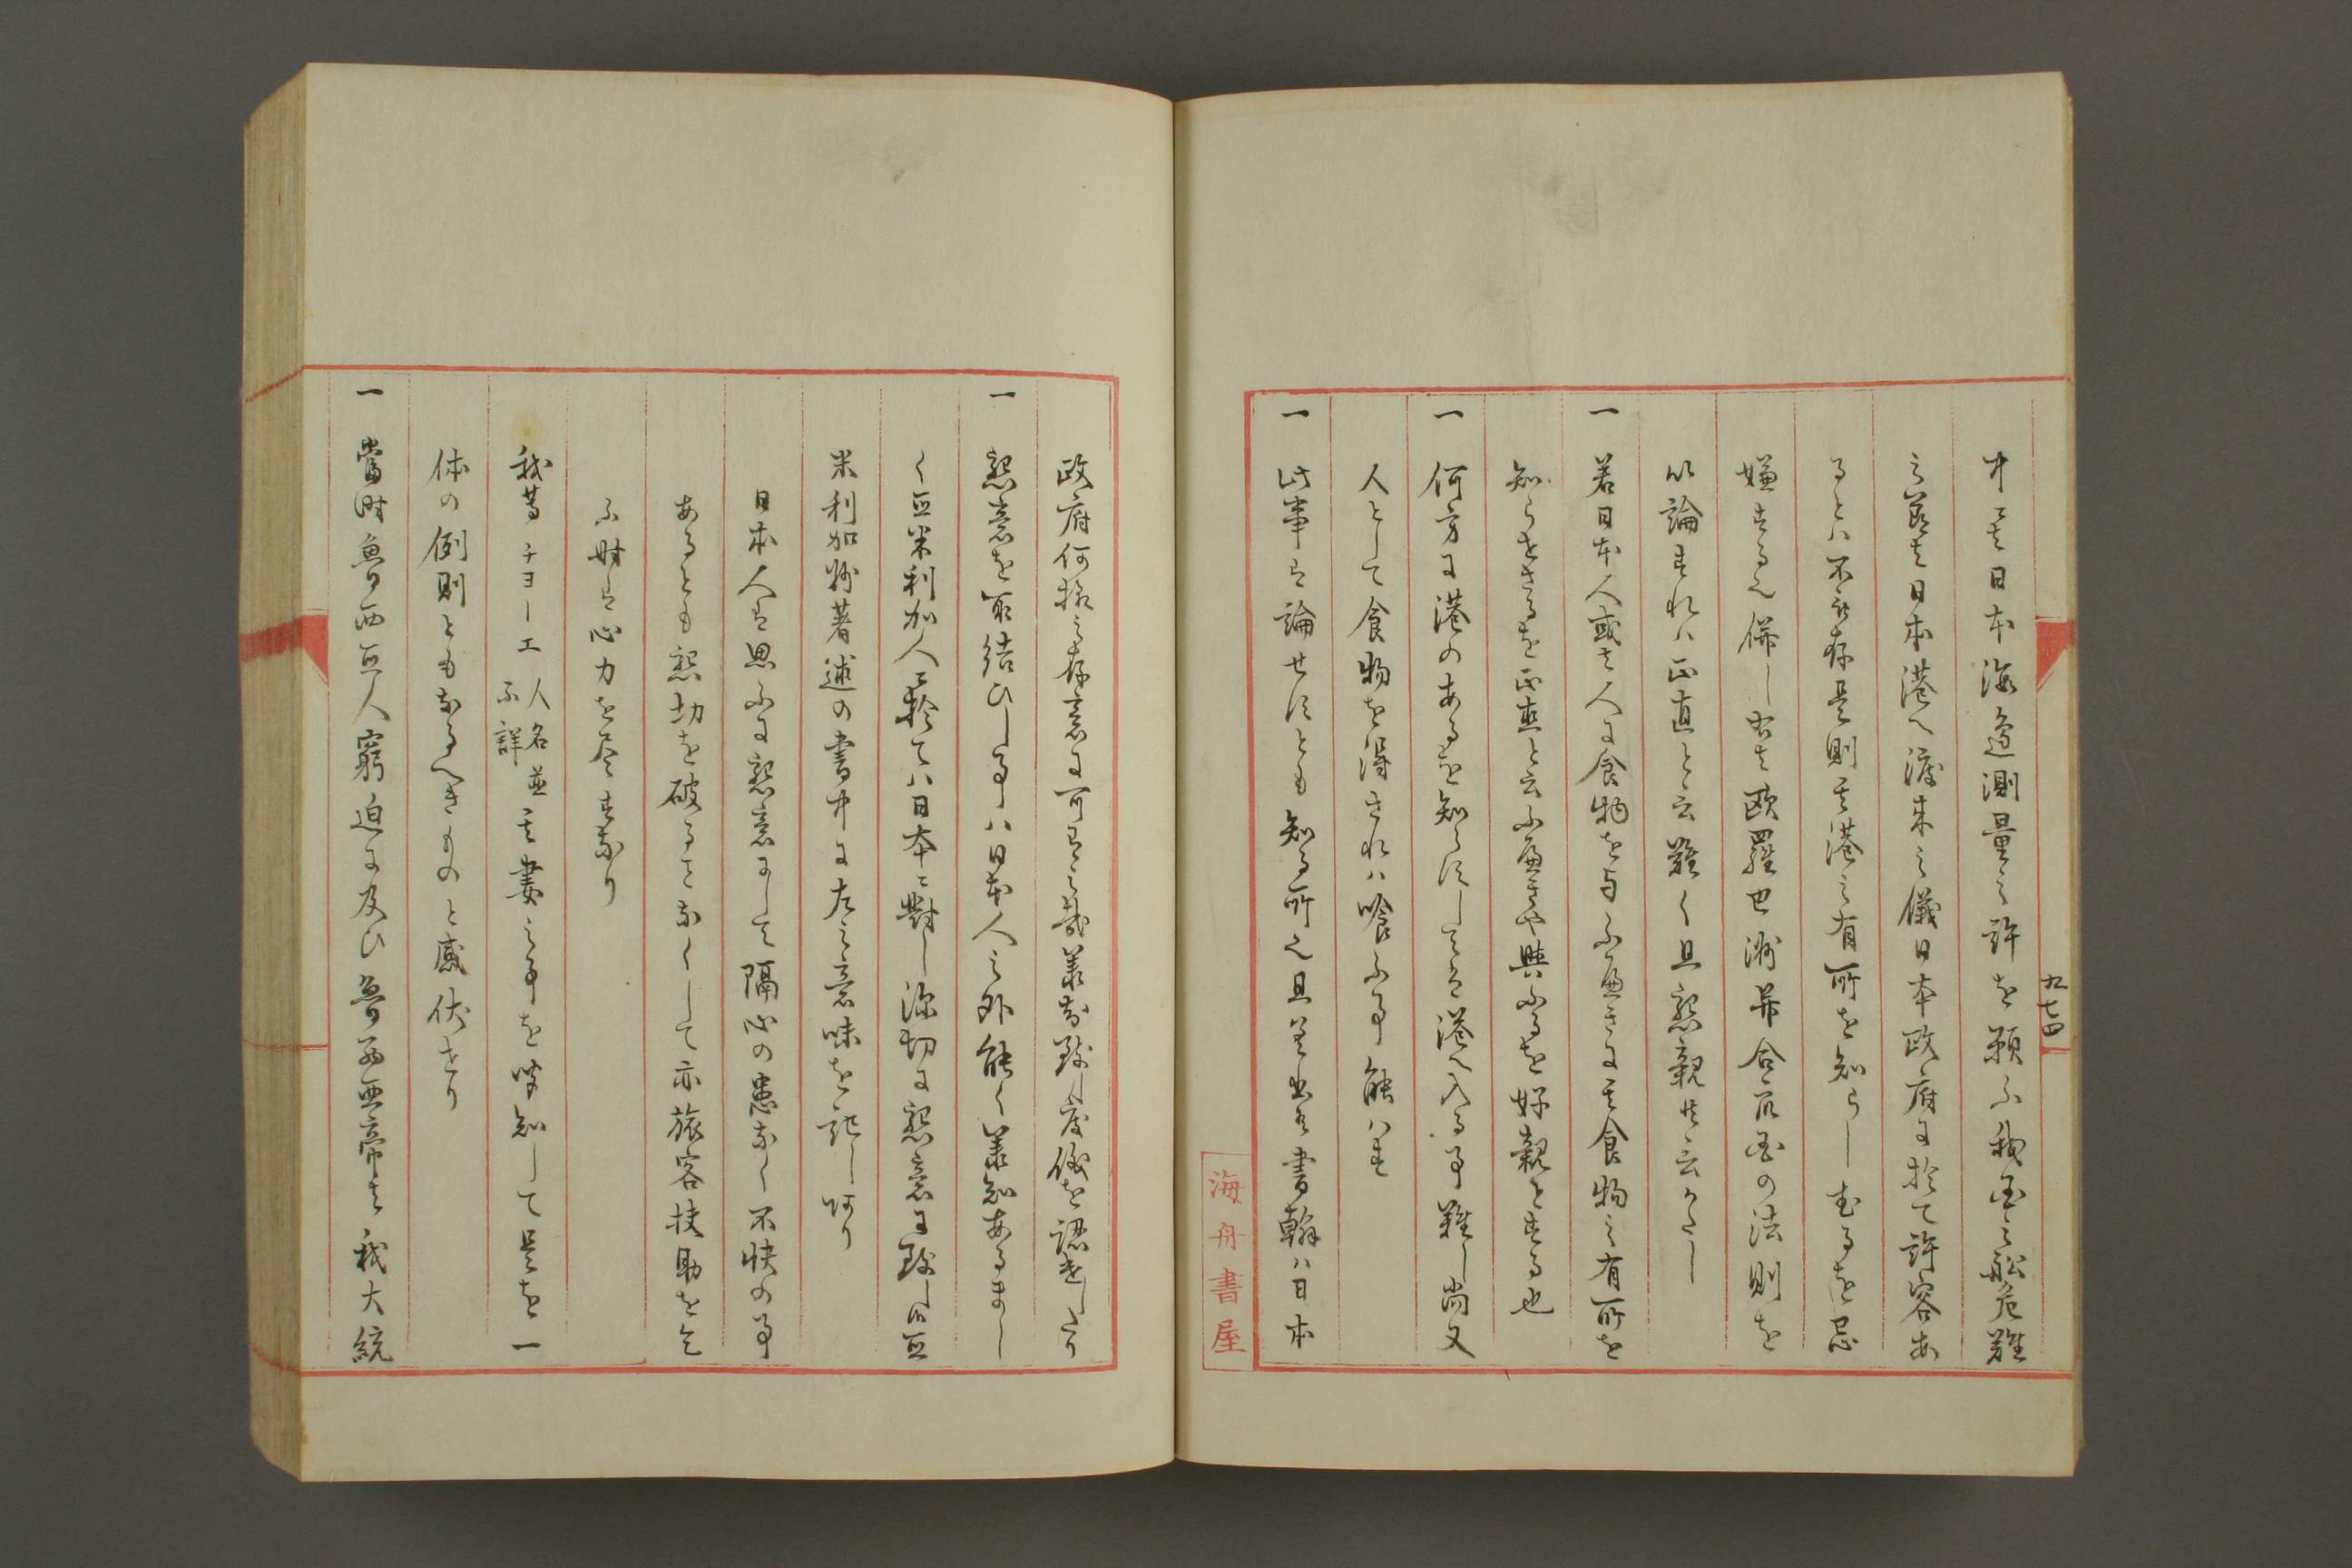 中ニ而日本海邊測量之許を願ふ我国之舩危難
之節者日本港へ渡来之儀日本政府に於て許容あ
るとハ不致存是則其港之有所を知らしむるを忌
嫌する也併し右者欧羅巴洲并合衆国の法則を
以論すれハ正直と云難く且懇親共云かたし
一 若日本人或者人に食物を与ふ處きに其食物之有所を
知らせさるを正直と云ふ處きや與ふるを好親とする也
一 何方に港のあるを知らすして者港へ入る事難し尚又
人として食物を得されハ喰ふ事能ハす
一 此事者論せすとも知る所也且是迄書翰ハ日本
九十四
海舟書屋
政府何様之存意に可有之哉承知致度儀を認遣したり
一 懇意を取結ひし事ハ日本人之外能く承知あるまし
く亞米利加人ニ於てハ日本ニ對し深切に懇意に致し候亞
米利加州著述の書中に左之意味を記し有り
日本人者思ふに懇意にして隔心の患なく不快の事
あるとも懇切を破ること なくして亦旅客扶助を乞
ふ時者心力を尽すなり
我等チヨーエ人名並不詳其妻之事を聞知して是を一
体の例則ともなるへきものと感伏せり
一 當時魯西亞人窮迫に及ひ魯西亜帝者我大統